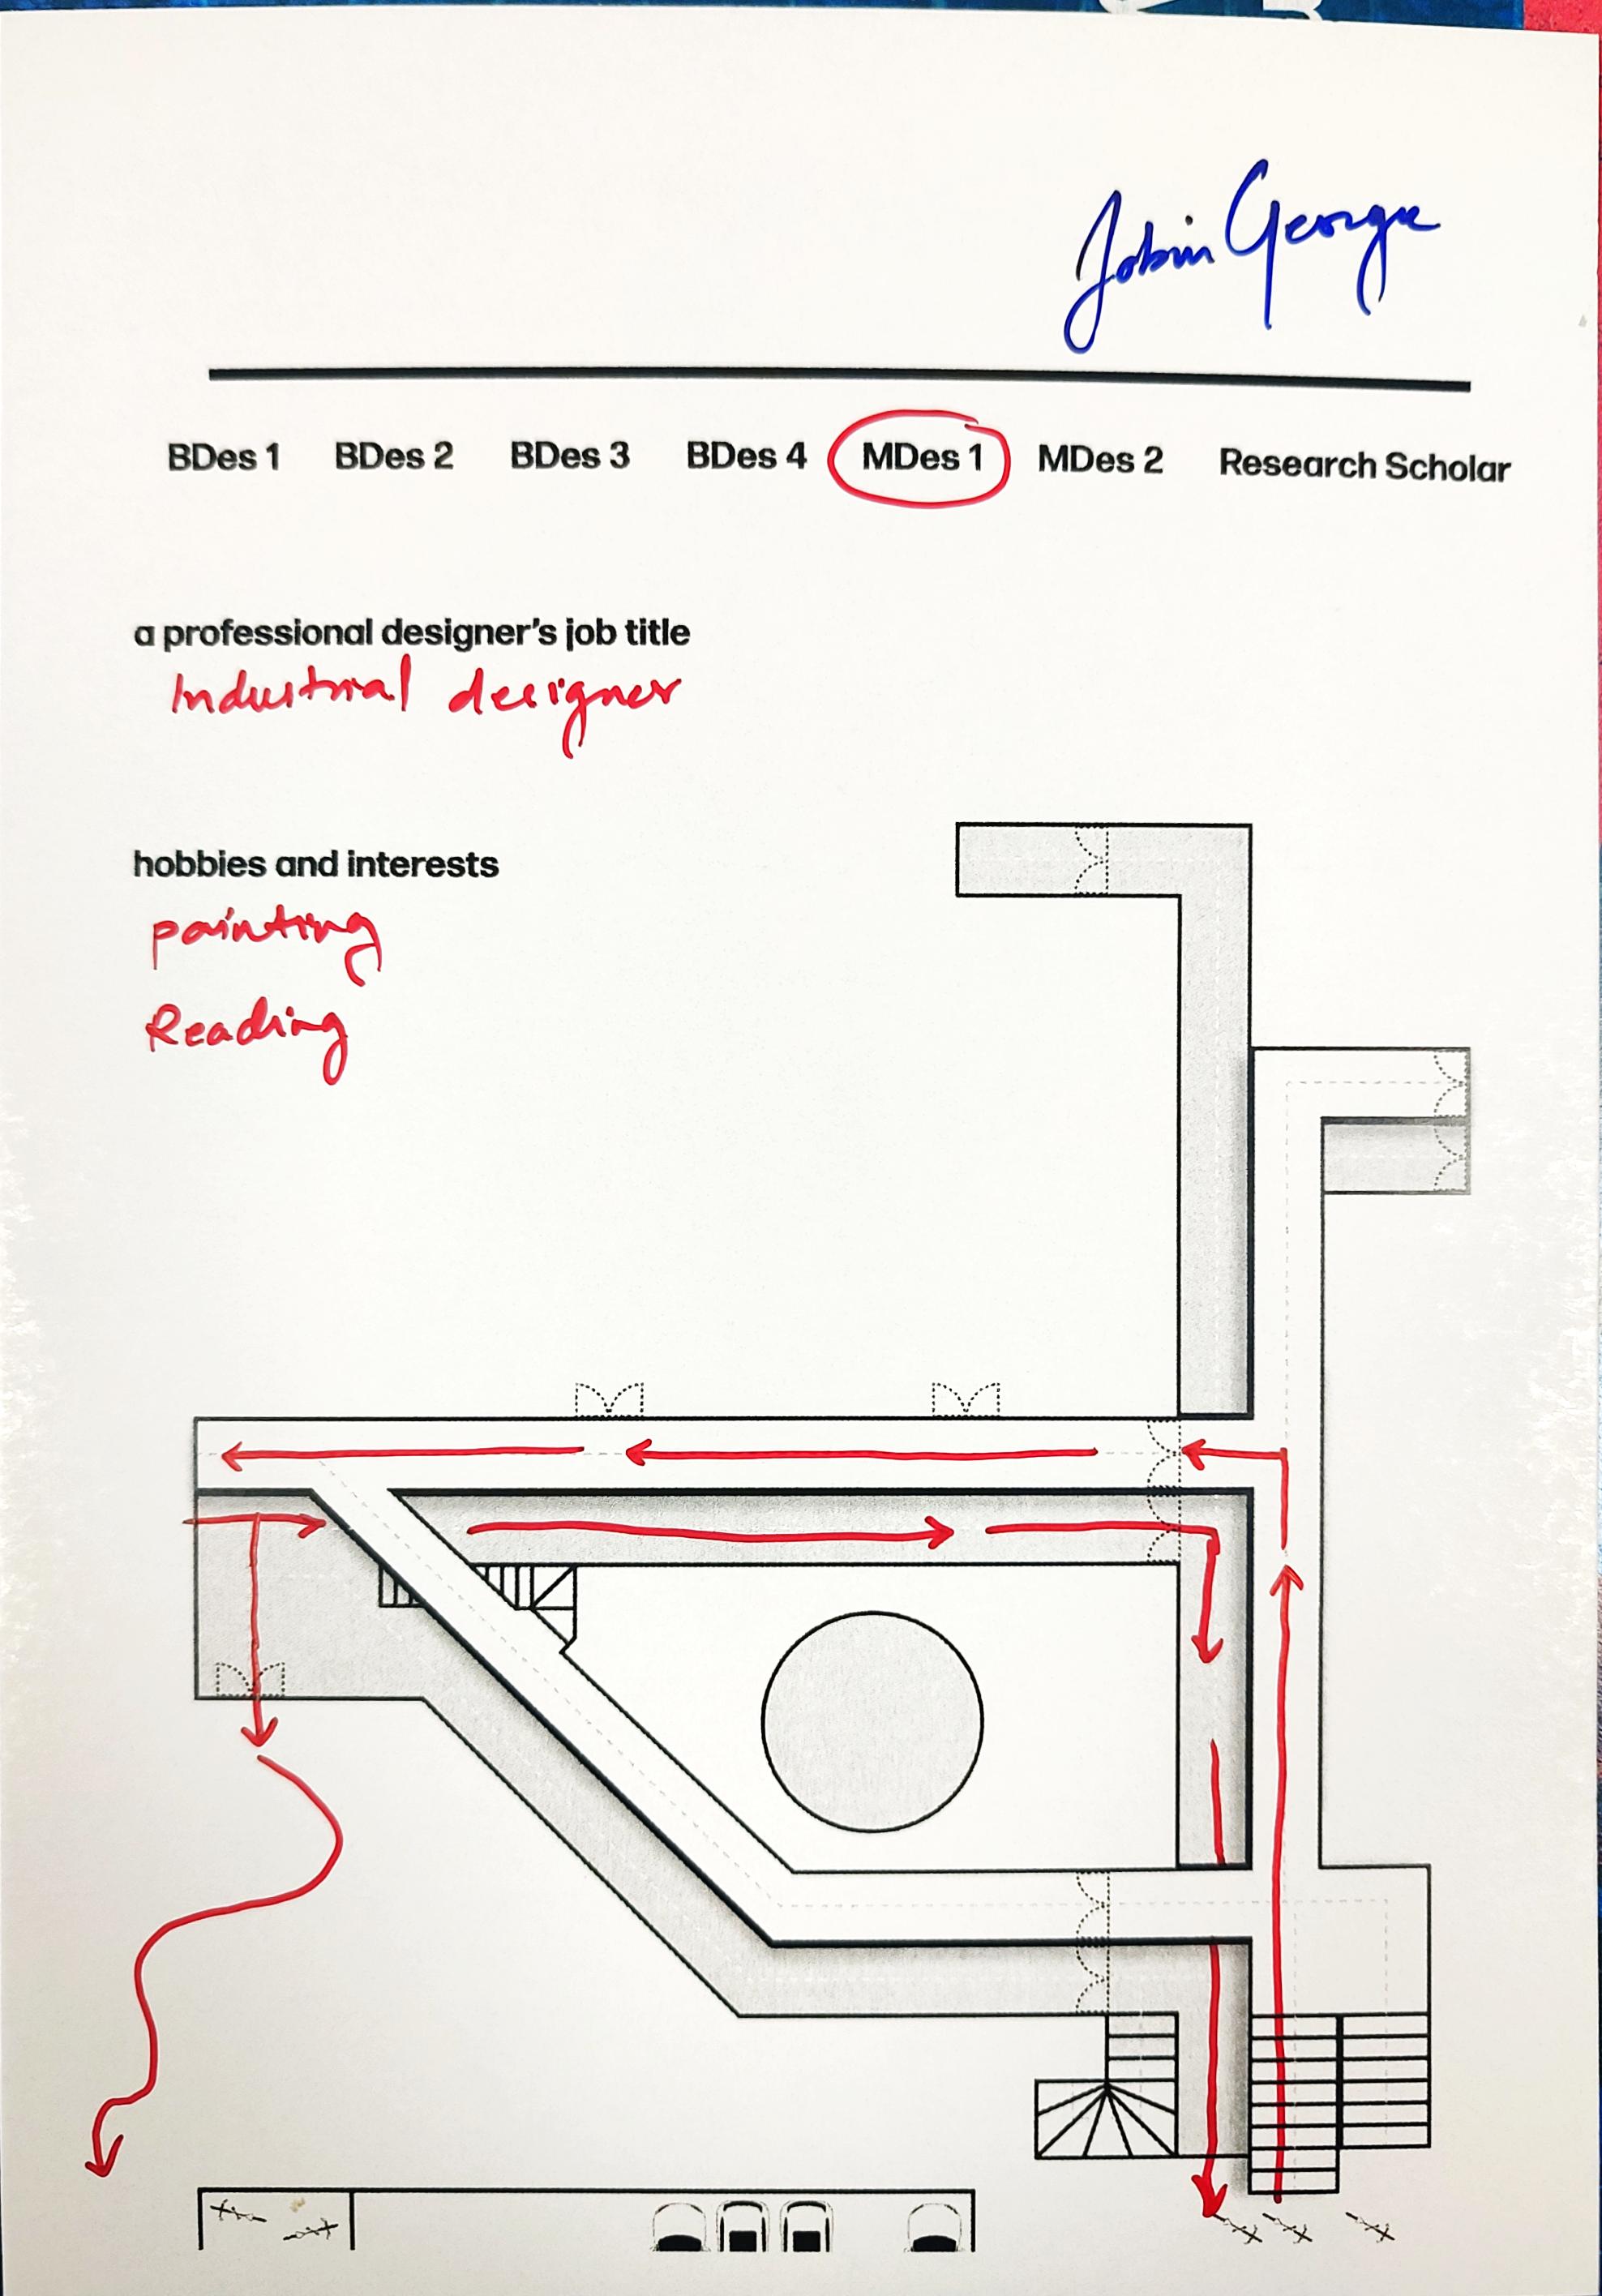 Jobin George
BDes 1 BDes 2 BDes 3 BDes 4 MDes 1 MDes 2 Research Scholar
a professional designer's job title
Industrial designer
hobbies and interests
painting
Reading